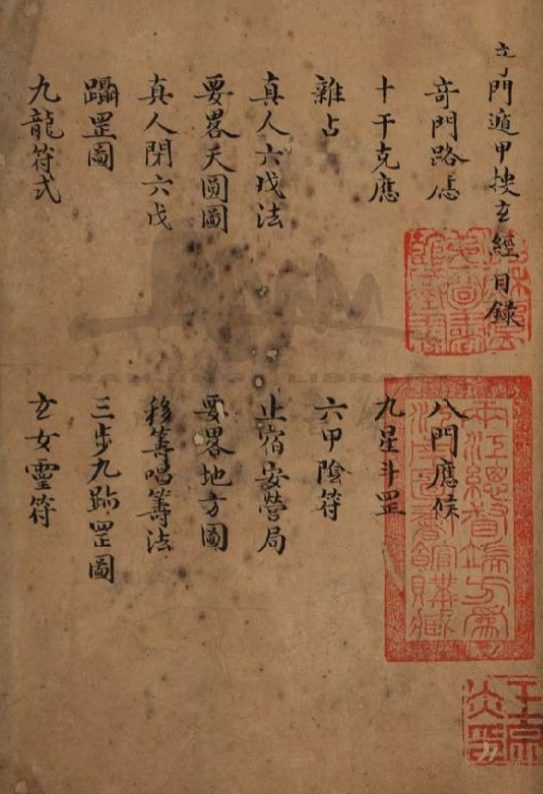 門遁甲搜玄經目錄
奇門路 八門應候
十干克應 九星斗罡
雜占 六甲陰符
真人六戊法 止宿安營局
要畧天圓圖 要畧地方圖
真人閉六戊 移籌唱籌法
躡罡圖 三步九跡罡圖
九龍符式 玄女靈符
兩江總督端方為
江南圖書館購藏
王宗
炎印